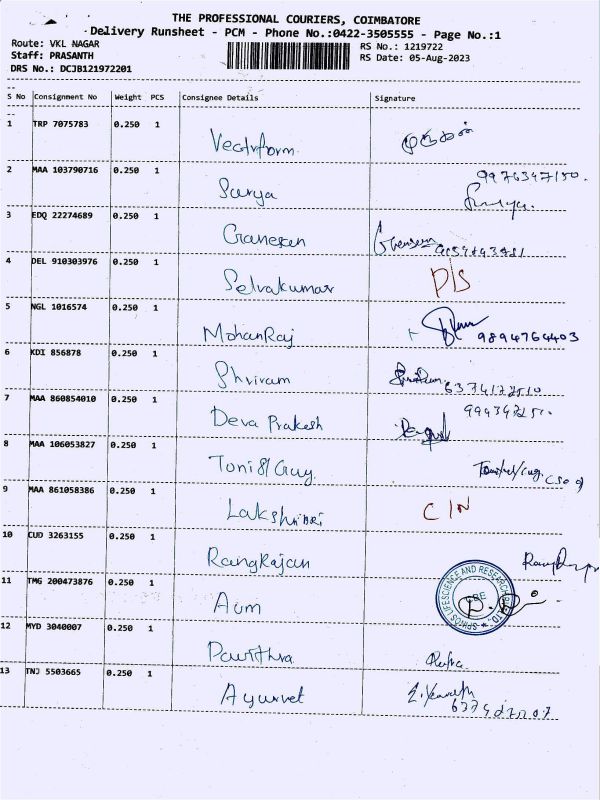 THE PROFESSIONAL COURIERS, COIMBATORE
Delivery Runsheet - PCM - Phone No.:0422-3505555 - Page No.:1
Route: VKL NAGAR RS No.: 1219722
Staff: PRASANTH RS Date: 05-Aug-2023
DRS No.: DCJB121972201
S No Consignment No Weight PCS Consignee Details Signature
1 TRP 7075783 0.250 1
Vectriform முருகன்
2 MAA 103790716 0.250 1 9976347150.
Surya Surya
3 EDQ 22274689 0.250 1
Ganesan
4 DEL 910303976 0.250 1
Selvakumar D/S
5 NGL 1016574 0.250 1
MohanRaj 9894764403
6 KDI 856878 0.250 1
Shriram
7 MAA 860854010 0.250 1
Deva Prakesh
8 MAA 106053827 0.250 1
Toni & Guy
9 MAA 861058386 0.250 1
Lakshmi C/N
10 CUD 3263155 0.250 1
RangRajan
11 TMG 200473876 0.250 1
Aum LIFE SCIENCE AND RESEARCH CBE
12 MYD 3040007 0.250 1
Pavithra
13 TNJ 5503665 0.250 1
Ayurvet